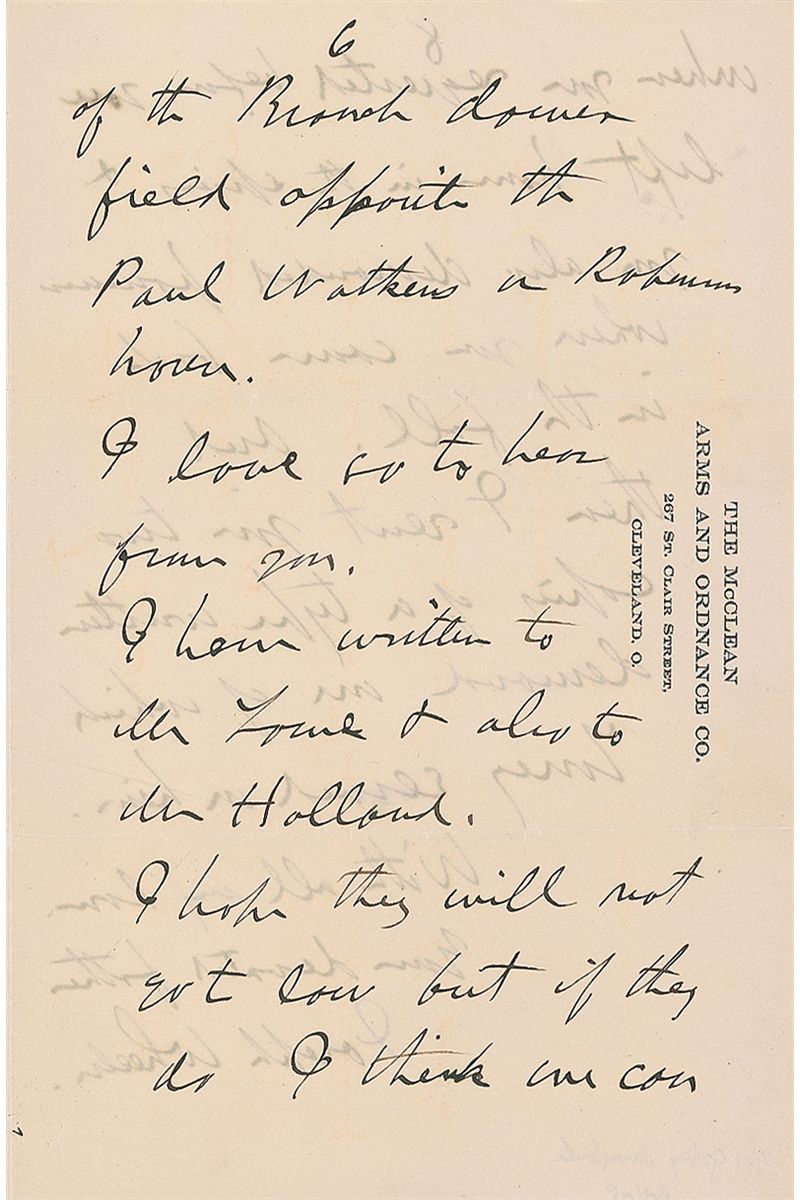 6
of the Branch
field opposite the
Paul Watkins or Robinson
house.
I love so to hear
from you.
I have written to
Mr Lowe & also to
Mr Holland.
I hope they will not
but if they
do I think we can
THE McCLEAN
ARMS AND ORDNANCE CO.
267 ST. CLAIR STREET,
CLEVELAND, O.